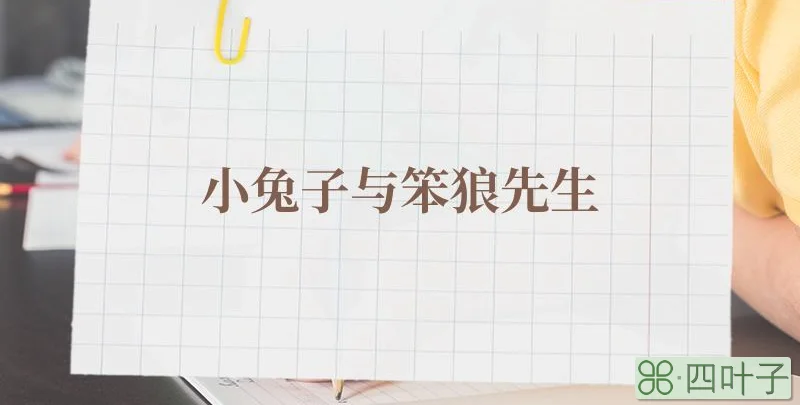 小兔子与笨狼先生
四叶子